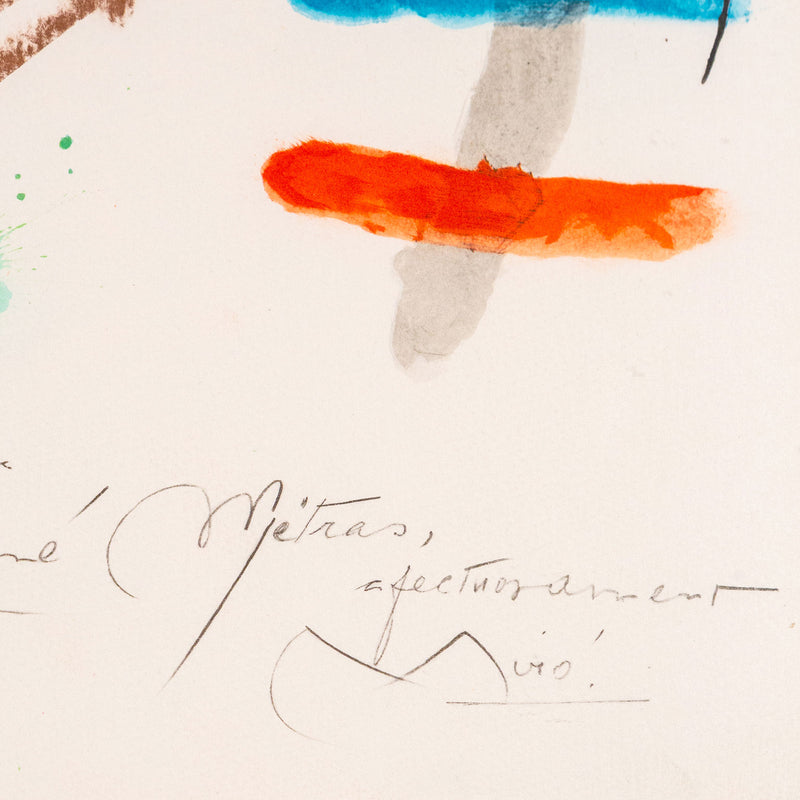 né Métras,
afectuosament
Miró.